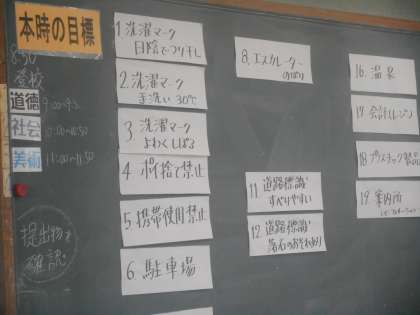 本時の目標
8:50
登校
道徳 9:00~9:50
社会 10:00~10:50
美術 11:00~11:50
提出物を
確認
1. 洗濯マーク
日陰でつり干し
2. 洗濯マーク
手洗い 30℃
3. 洗濯マーク
よわくしぼる
4 ポイ捨て禁止
5 携帯使用禁止
6. 駐車場
8. エスカレーター
のぼり
11. 道路標識
すべりやすい
12. 道路標識
落石のおそれあり
16. 温泉
17. 会計・レジ
18 プラスチック製品
19. 案内所